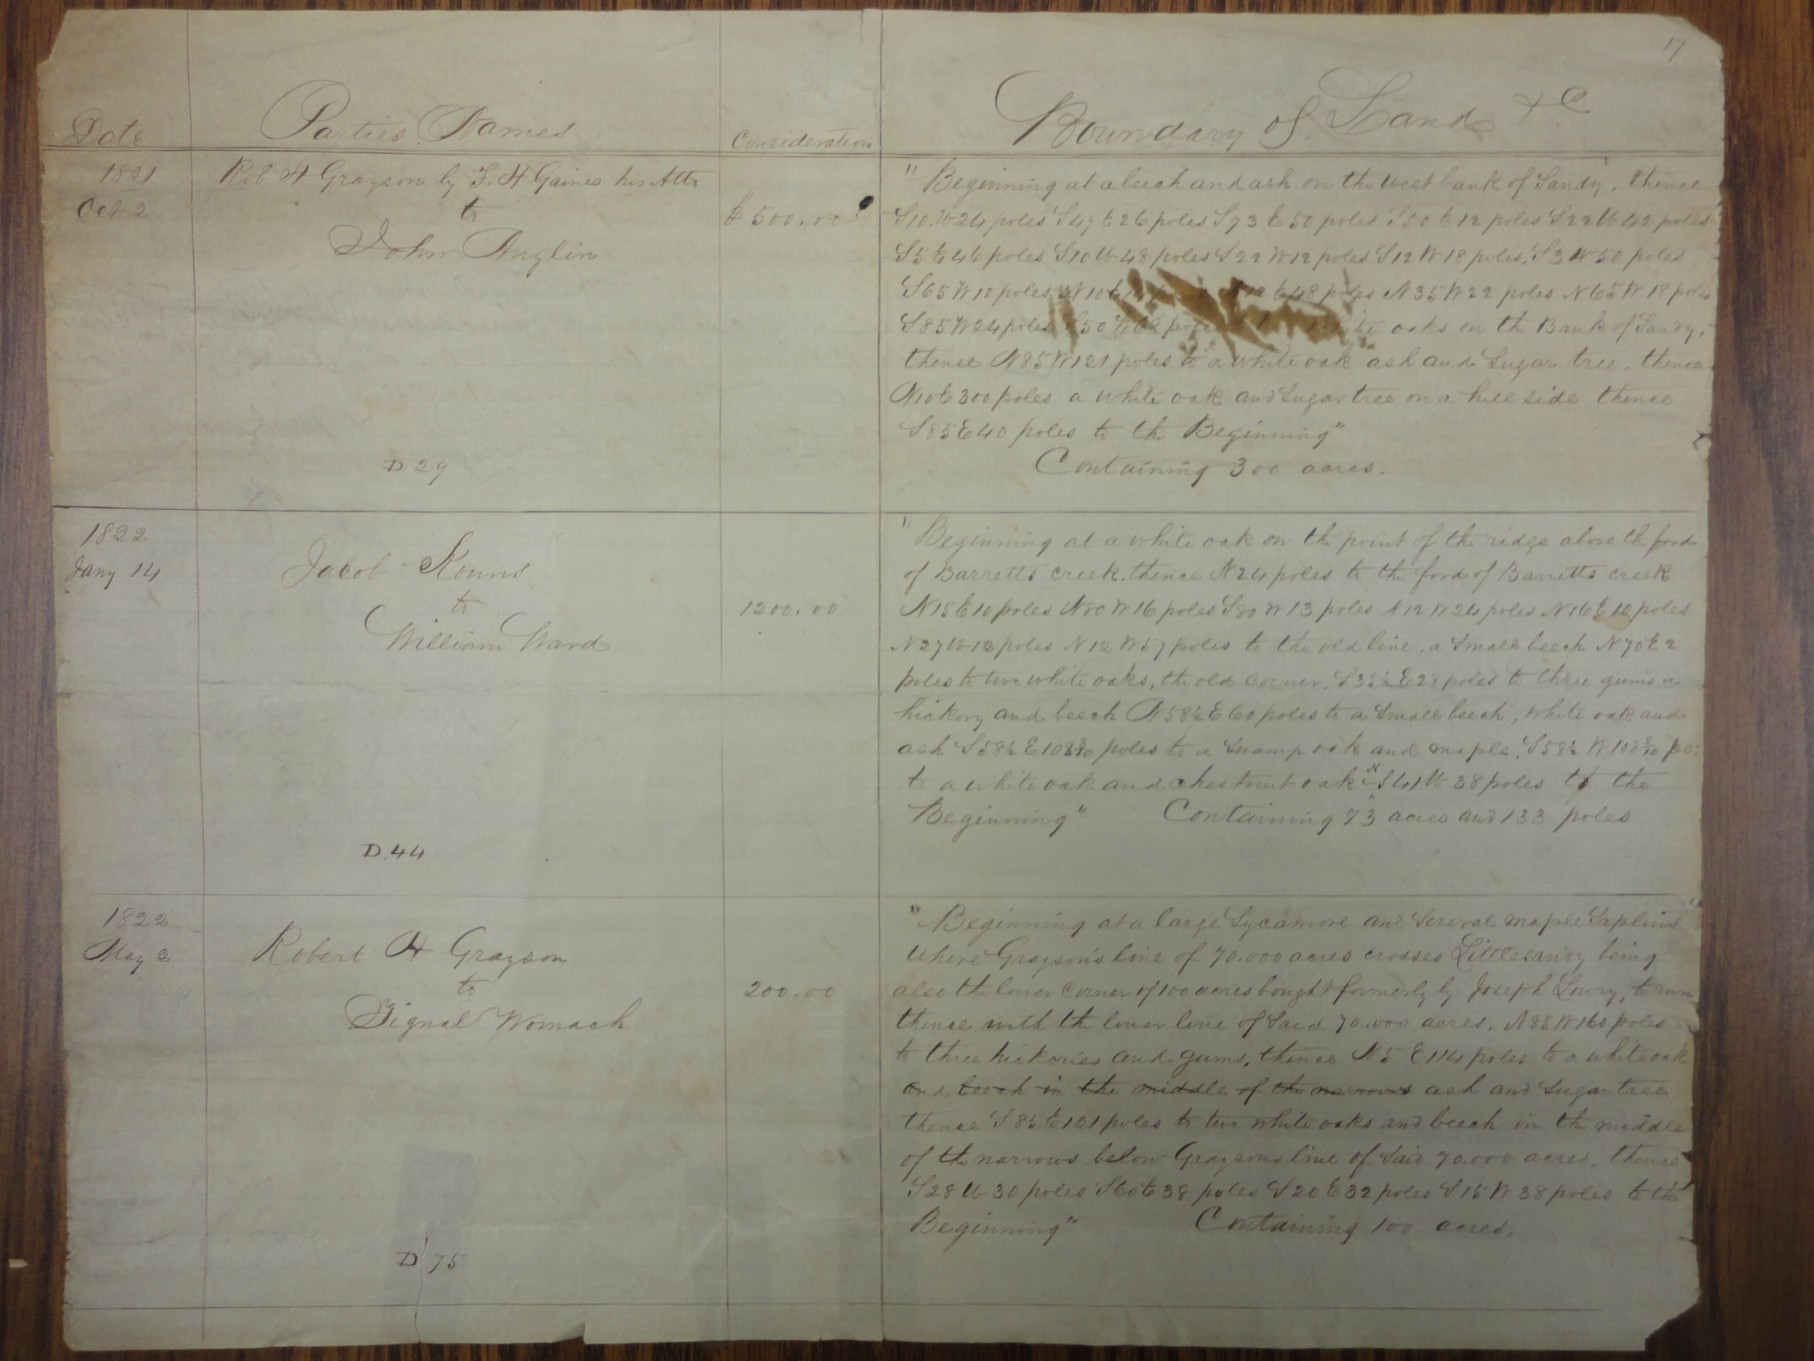 17
Date
Parties Names
Consideration
Boundary of Land &c
1821
Oct 2
Rob H Grayson by F. H Gaines his Atto
to
John Anglin
$500.00
D 29
"Beginning at a beech and ash on the west bank of Sandy, thence
S10.W24 poles S47 E26 poles S73 E50 poles S50 E12 poles S22W42 poles
S5 E46 poles S10W48 poles S22 W12 poles S12 W18 poles. S3 W50 poles
S65 W10 poles N10 E48 poles N35 W22 poles N65 W18 poles
S85 W24 poles S50 oaks on the Bank of Sandy,
thence N85 W121 poles to a white oak ash and Sugar tree, thence
N10 E300 poles a white oak and Sugar tree on a hill side thence
S85 E40 poles to the Beginning"
Containing 300 acres.
1822
Jany 14
Jacob Kouns
to
William Ward
1200.00
D.44
"Beginning at a white oak on the point of the ridge above the ford
of Barretts creek, thence N24 poles to the ford of Barretts creek
N15 E10 poles N80 W16 poles S80 W13 poles N12 W24 poles N16 E12 poles
N27 W12 poles N12 W57 poles to the old line, a Small beech N70 E2
poles to two white oaks, the old corner. E28 poles to three gums a
hickory and beech N58½ E60 poles to a Small beech, white oak and
ash S58½ poles to a Swamp oak and maple. S58½ po:
to a white oak and chestnut oak N S41 W38 poles to the
Beginning" Containing 73 acres and 133 poles
1822
May 2
Robert H Grayson
to
Signal Womach
200.00
D 75
"Beginning at a large Sycamore and several maple Saplins
where Grayson's line of 70.000 acres crosses Littlesandy being
also the lower corner of 100 acres bought formerly by Joseph Lowry, to run
thence with the lower line of Said 70.000 acres. N85 W160 poles
to three hickories and gums, thence N5 E114 poles to a white oak
and beech in the middle of the narrows ash and Sugar tree
thence S85 E121 poles to two white oaks and beech in the middle
of the narrows below Graysons line of Said 70.000 acres, thence
S28 W30 poles S60 E38 poles S20 E32 poles S15 W38 poles to the
Beginning" Containing 100 acres.